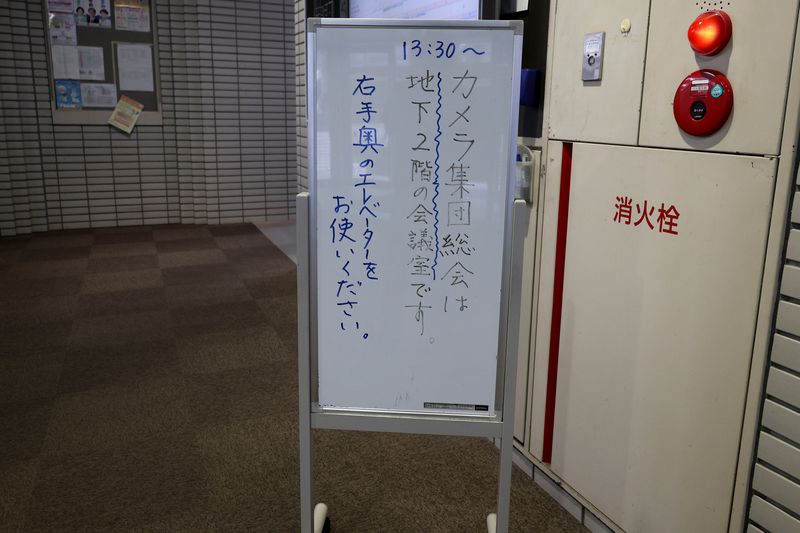 13:30～
カメラ集団総会は
地下2階の会議室です。
右手奥のエレベーターを
お使いください。
消火栓